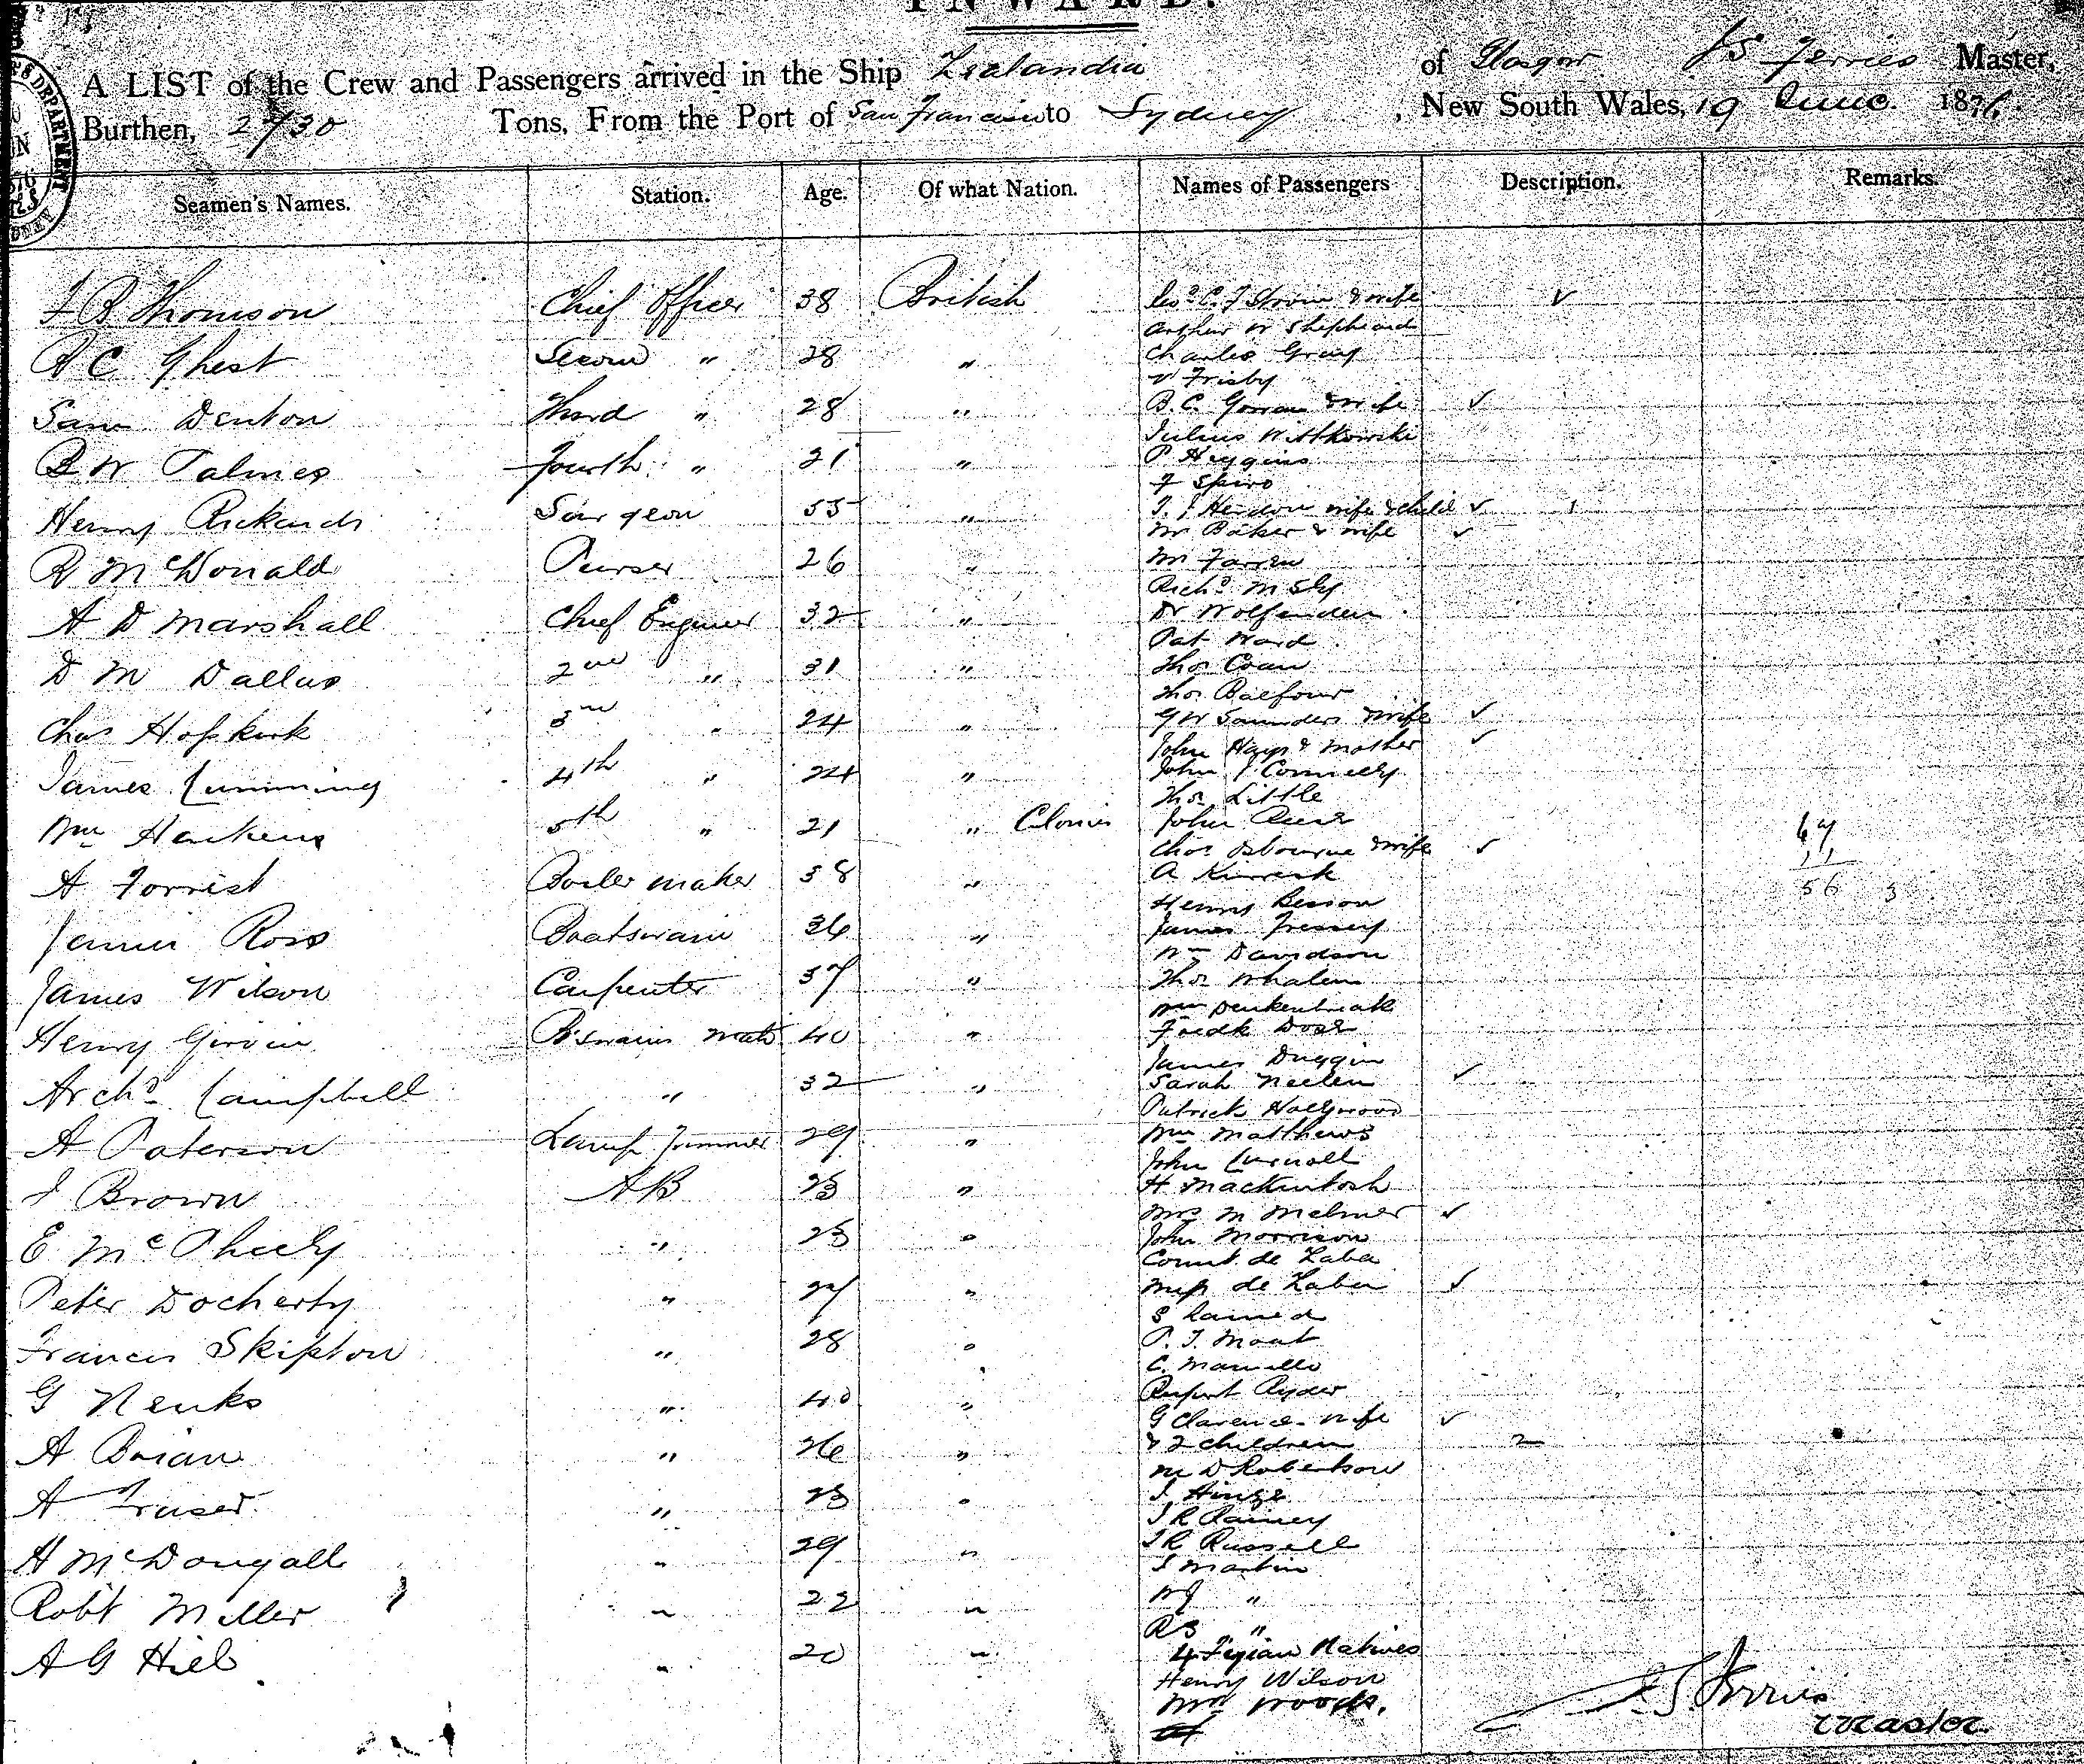 INWARD.
A LIST of the Crew and Passengers arrived in the Ship Zealandia of Glasgow J S Ferries Master,
Burthen, 2730 Tons, From the Port of San Francisco to Sydney, New South Wales, 19 June 1876
Seamen's Names. Station. Age. Of what Nation. Names of Passengers Description. Remarks.
Thomson Chief Officer 38 British
C Ghest Second " 28 "
Sam Denton Third " 28 "
W Palmer Fourth " 21 "
Henry Rickards Surgeon 55 "
R McDonald Purser 26 "
A D Marshall Chief Engineer 32 "
D M Dallas 2nd " 31 "
Chas Hopkirk 3rd " 24 "
James Cumming 4th " 24 "
Wm Harkens 5th " 21 "
A Forrest Boiler maker 38 "
James Ross Boatswain 36 "
James Wilson Carpenter 37 "
Henry Girvin B'swains mate 40 "
Archd Campbell " 32 "
A Paterson Lamp Trimmer 29 "
J Brown AB 23 "
E McPheely " 23 "
Peter Docherty " 27 "
Francis Skipton " 28 "
G Nenks " 40 "
A Brian " 26 "
A Fraser " 23 "
H McDougall " 29 "
Robt Miller " 22 "
A G Hill " 20 "
& wife
Arthur W Shepheard
Charles Gray
Frisby
B. C. & wife
Julius Witkowski
P Higgins
F Spiro
wife & child
Mr Baker & wife
Mr Farren
Richd M Sly
Dr Wolfenden
Pat Ward
Thos Coan
Thos Balfour
G W Saunders & wife
John Hays & Mother
John J Connelly
Thos Little
John
Chas Osbourne & wife
A
Henry Besson
James
Wm Davidson
Thos Whalen
Wm
Fredk
James Duggin
Sarah Neelen
Patrick Hollywood
Wm Matthews
John Curnall
H Mackintosh
Mrs M
John Morrison
Count de Laba
Miss de Laba
S
P. J. Moat
C.
Rupert Ryder
G Clarence wife
& 2 children 2
M D Robertson
J Hinge
J R Rainey
J R Russell
J Martin
W J "
R S "
4 Fijian Natives
Henry Wilson
Woods.
67
11
56 3
J S Ferries
Master